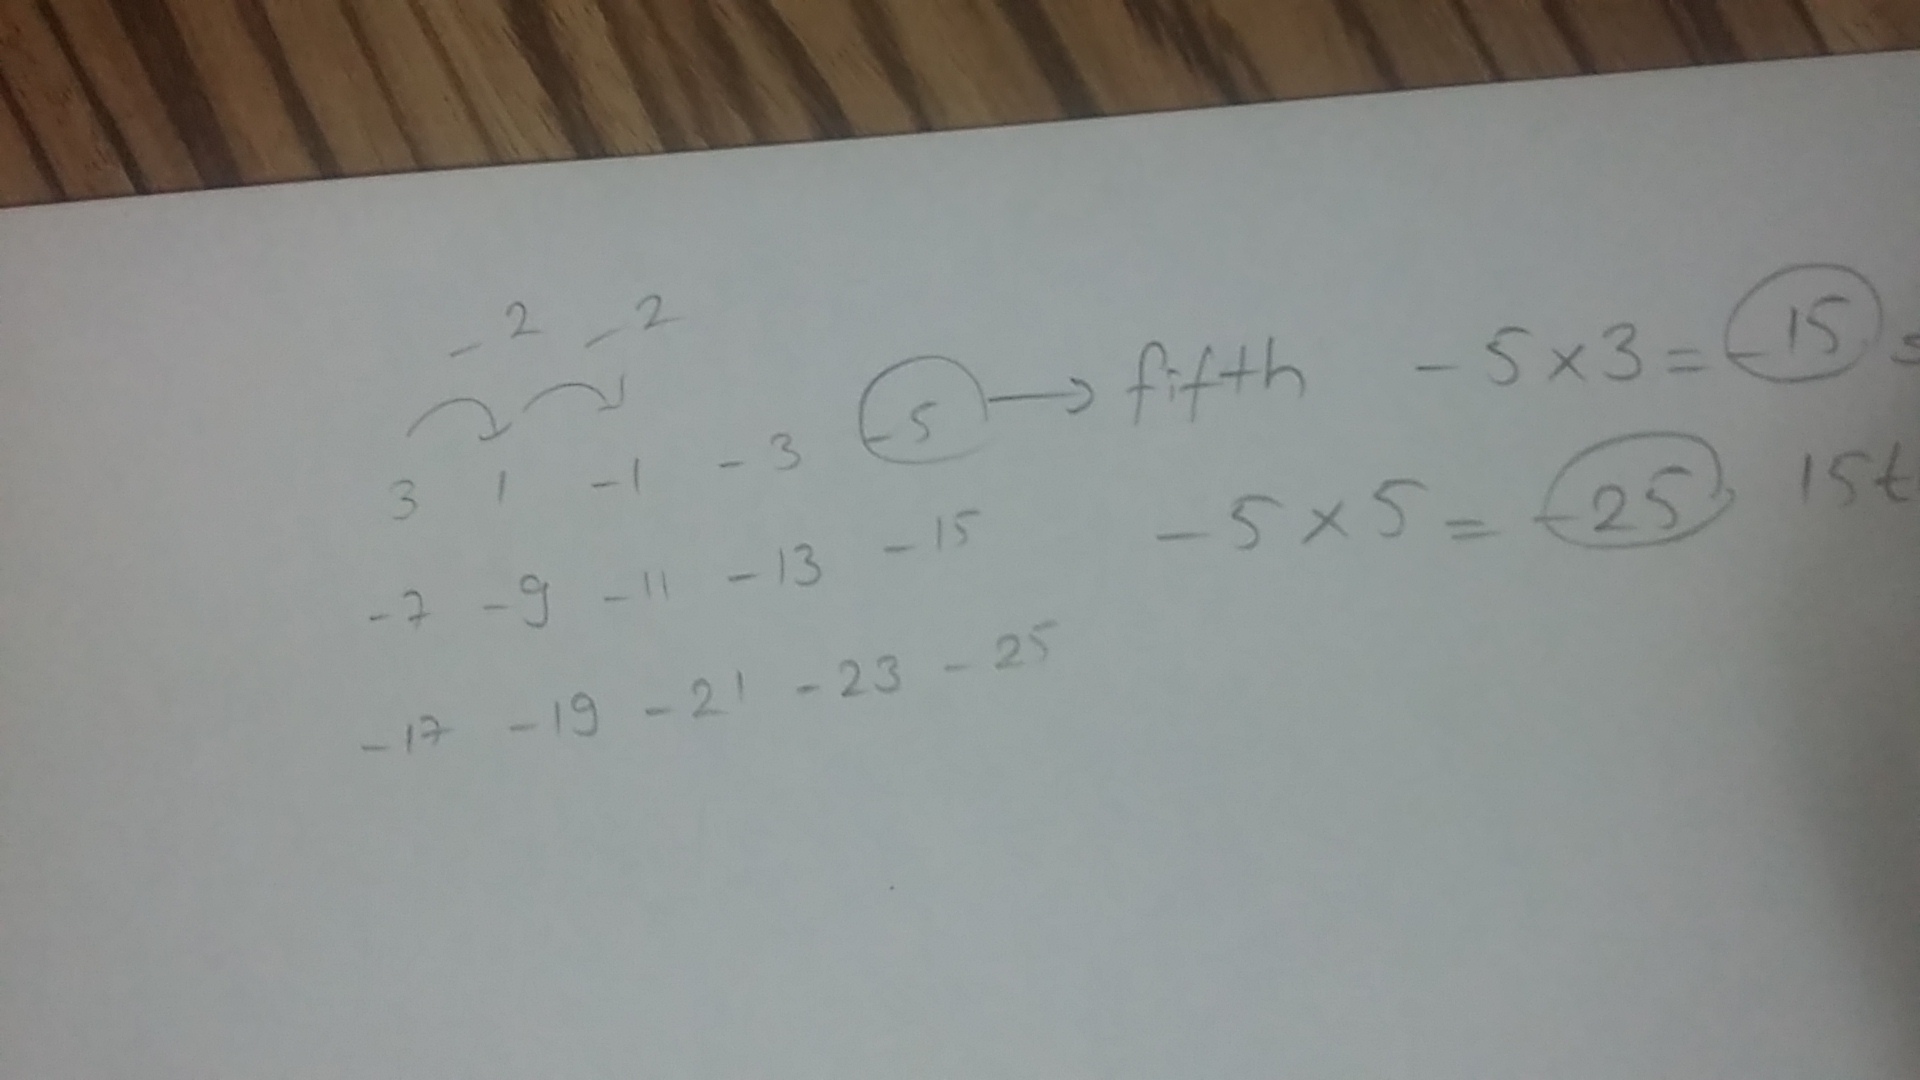 -2 -2
3 1 -1 -3 -5 → fifth -5×3=-15
-7 -9 -11 -13 -15 -5×5=-25 15t
-17 -19 -21 -23 -25